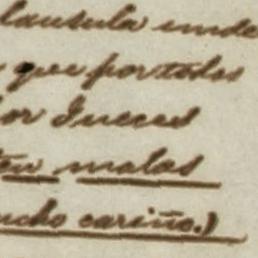 lausula inde
que por todos
or Jueces
ten malos
ucho cariño.)